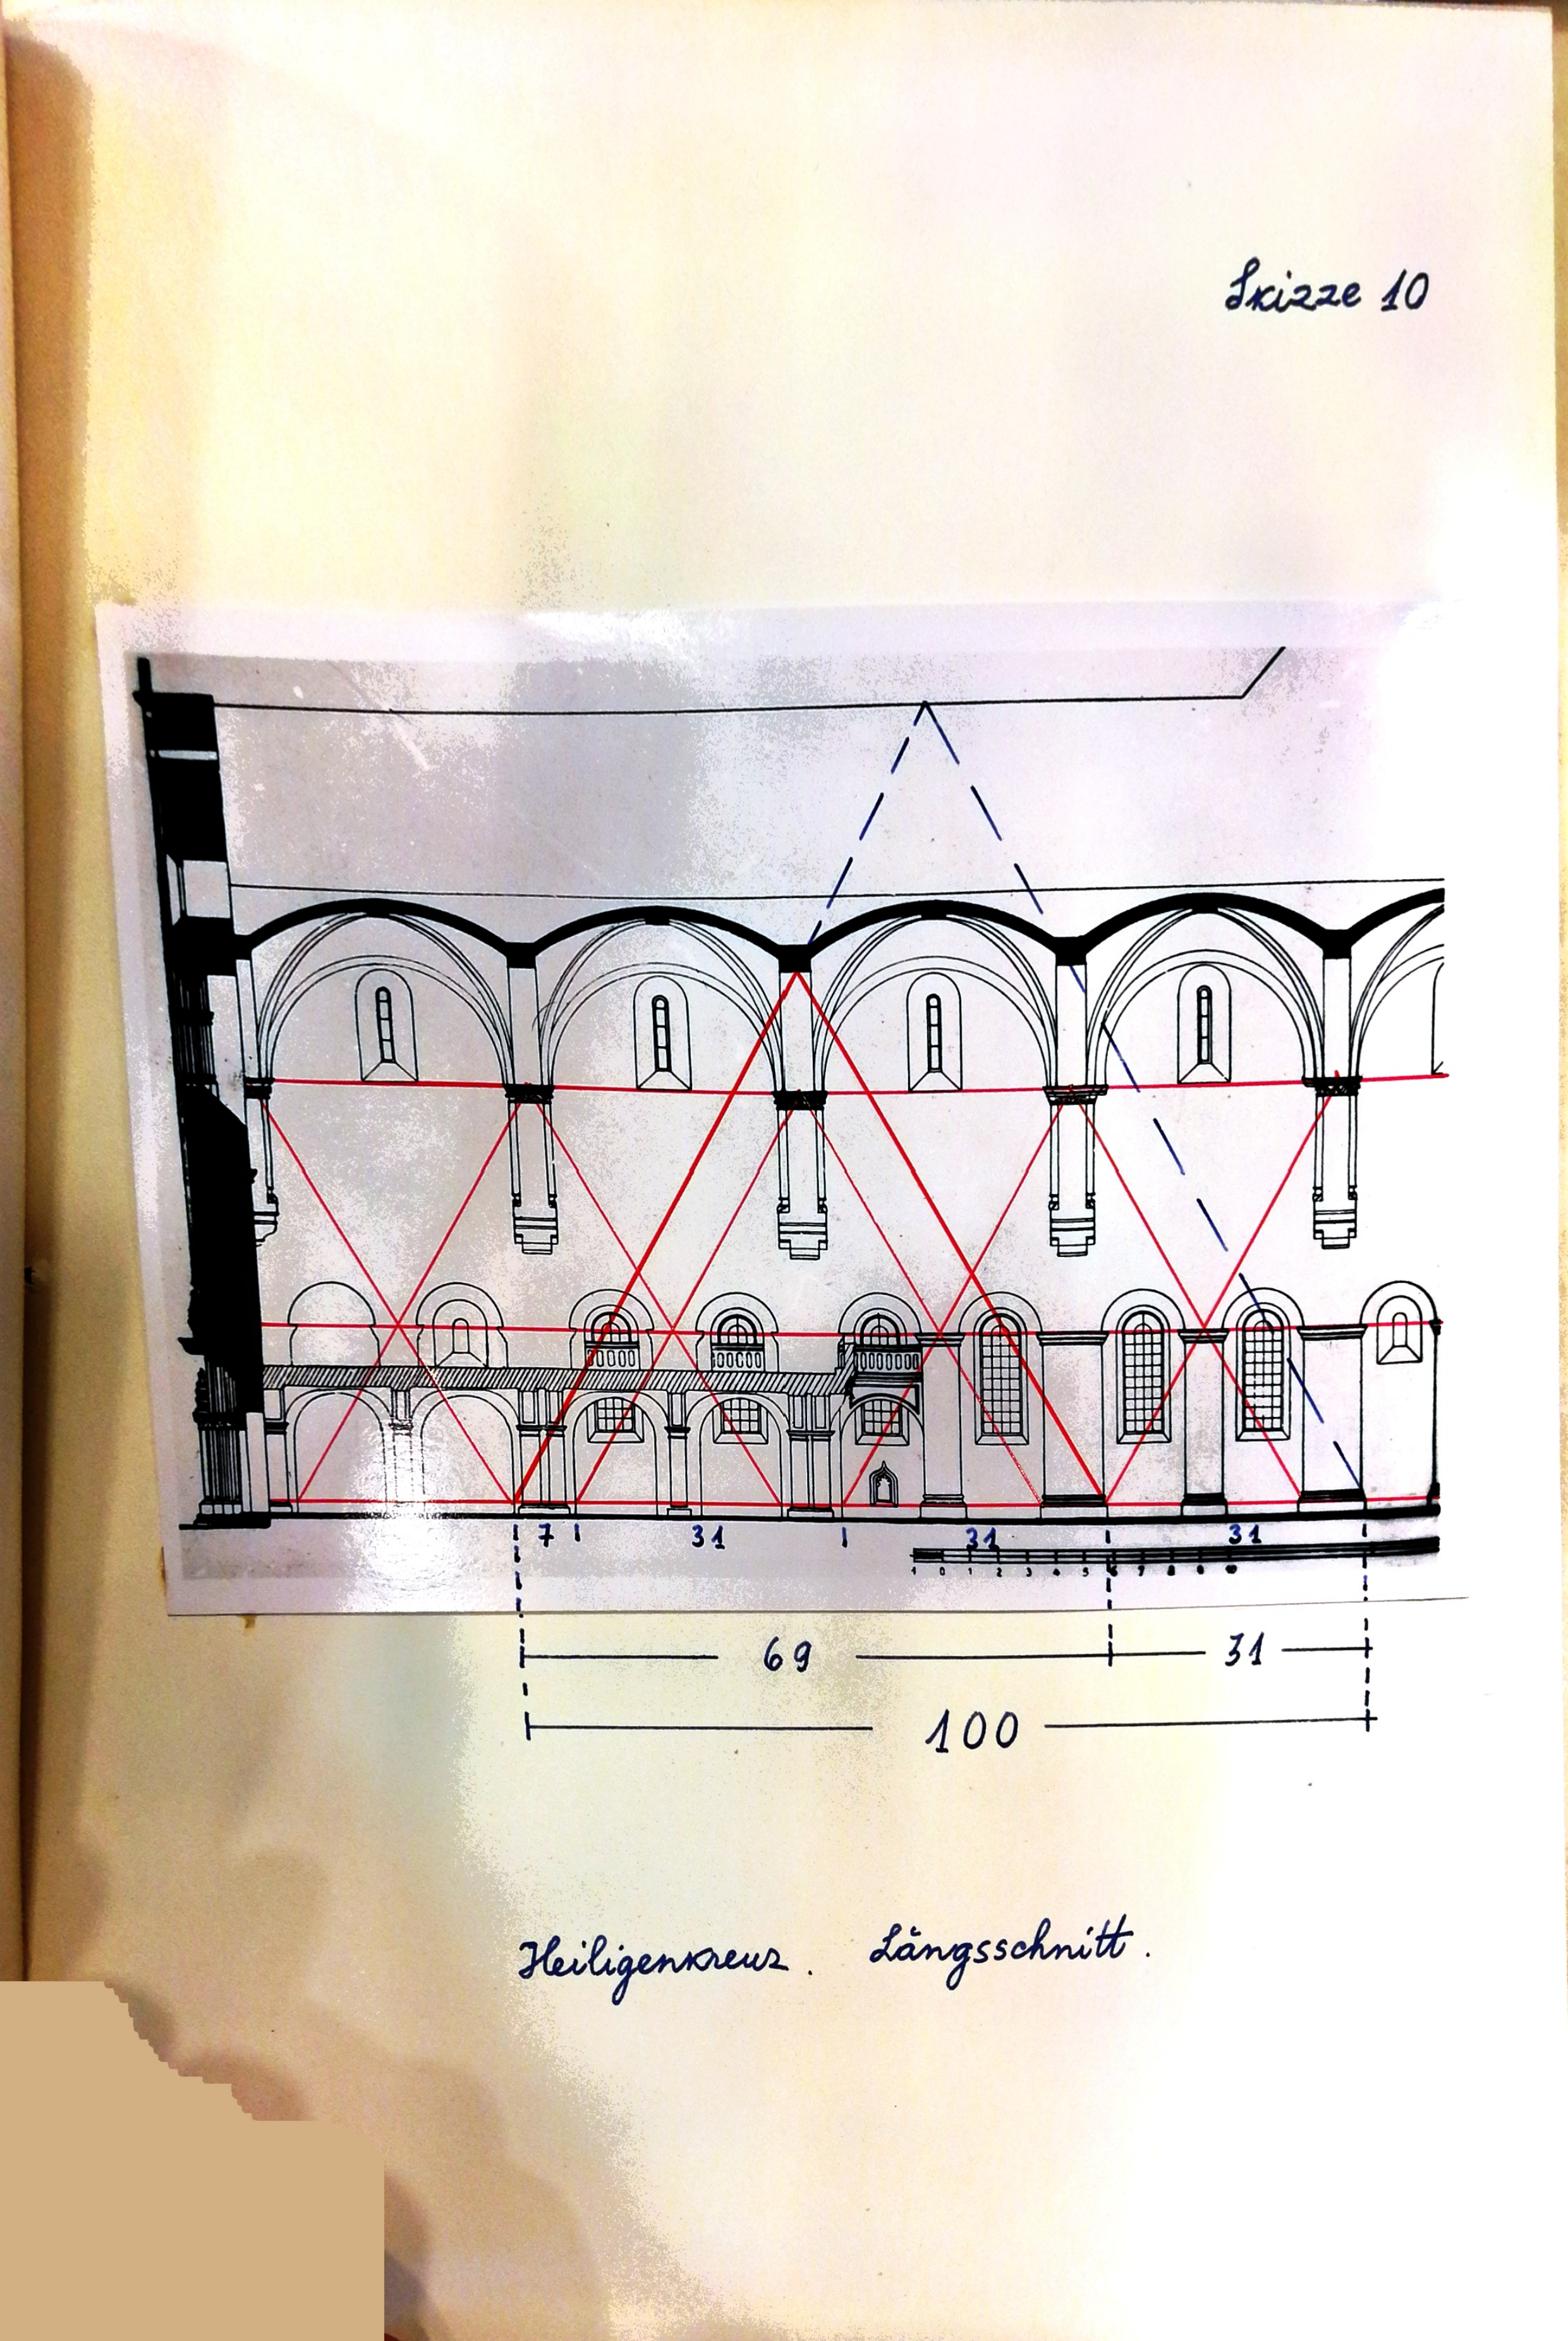 Skizze 10
7 31 31 31
1 0 1 2 3 4 5 6 7 8 9 10
69 31
100
Heiligenkreuz. Längsschnitt.